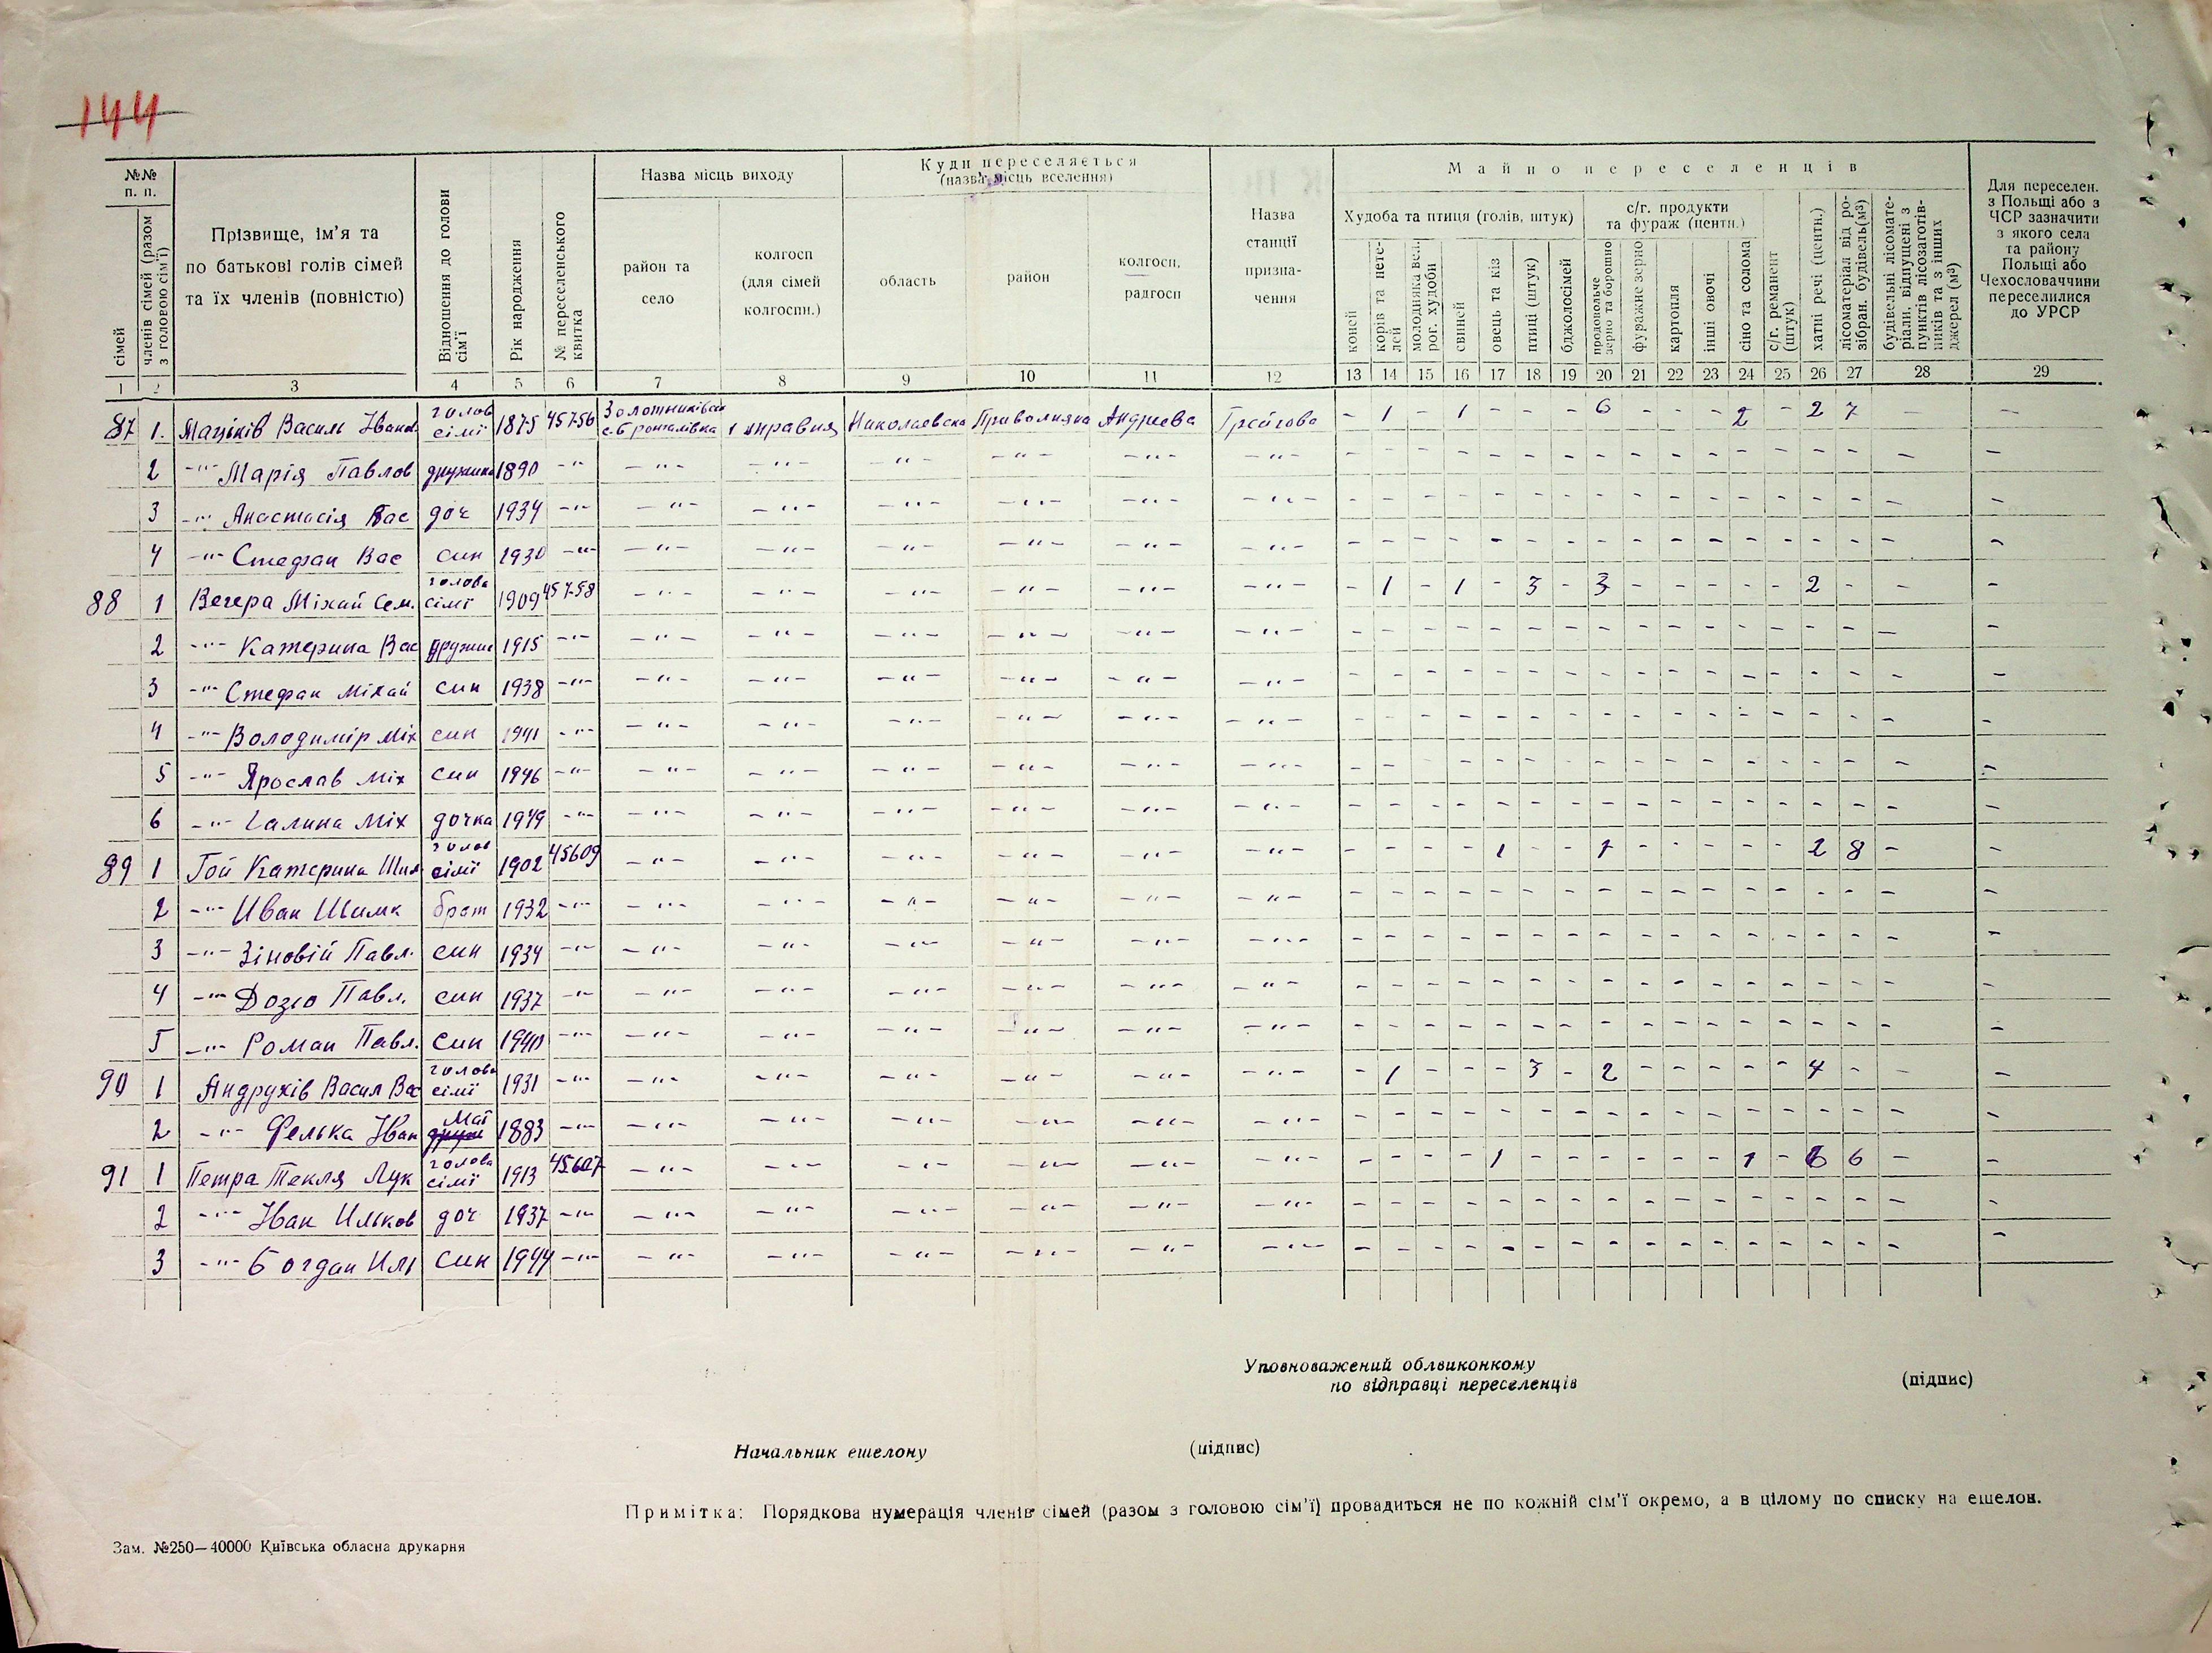 144
№№ п. п.
сімей
членів сімей (разом з головою сім'ї)
Прізвище, ім'я та по батькові голів сімей та їх членів (повністю)
Відношення до голови сім'ї
Рік народження
№ переселенського квитка
Назва місць виходу
район та село
колгосп (для сімей колгоспн.)
Куди переселяється (назва місць вселення)
область
район
колгосп, радгосп
Назва станції призначення
Майно переселенців
Худоба та птиця (голів, штук)
коней
корів та нетелей
молодняка вел. рог. худоби
свиней
овець та кіз
птиці (штук)
бджолосімей
с/г. продукти та фураж (центн.)
продовольче зерно та борошно
фуражне зерно
картопля
інші овочі
сіно та солома
с/г. реманент (штук)
хатні речі (центн.)
лісоматеріал від розібран. будівель (м³)
будівельні лісоматеріали, відпущені з пунктів лісозаготівників та з інших джерел (м³)
Для переселен. з Польщі або з ЧСР зазначити з якого села та району Польщі або Чехословаччини переселилися до УРСР
1 2 3 4 5 6 7 8 9 10 11 12 13 14 15 16 17 18 19 20 21 22 23 24 25 26 27 28 29
87 1. Маціків Василь Іванов голов сімї 1875 45756 Золотниківськ с. Броналівка 1 травня Николаевска Приволняна Андреева Грейгово - 1 - 1 - - - 6 - - - 2 - 2 7 - -
2 -"- Марія Павлов дружина 1890 -"- -"- -"- -"- -"- -"- -"- - - - - - - - - - - - - - - - - -
3 -"- Анастасія Вас доч 1934 -"- -"- -"- -"- -"- -"- -"- - - - - - - - - - - - - - - - - -
4 -"- Стефан Вас син 1930 -"- -"- -"- -"- -"- -"- -"- - - - - - - - - - - - - - - - - -
88 1 Вечера Міхай Сем. голова сімї 1909 45758 -"- -"- -"- -"- -"- -"- - 1 - 1 - 3 - 3 - - - - - 2 - - -
2 -"- Катерина Вас дружин 1915 -"- -"- -"- -"- -"- -"- -"- - - - - - - - - - - - - - - - - -
3 -"- Стефан Міхай син 1938 -"- -"- -"- -"- -"- -"- -"- - - - - - - - - - - - - - - - - -
4 -"- Володимір Міх син 1941 -"- -"- -"- -"- -"- -"- -"- - - - - - - - - - - - - - - - - -
5 -"- Ярослав Міх син 1946 -"- -"- -"- -"- -"- -"- -"- - - - - - - - - - - - - - - - - -
6 -"- Галина Міх дочка 1949 -"- -"- -"- -"- -"- -"- -"- - - - - - - - - - - - - - - - - -
89 1 Гой Катерина Шим. голов сімї 1902 45609 -"- -"- -"- -"- -"- -"- - - - - 1 - - 1 - - - - - 2 8 - -
2 -"- Иван Шимк брат 1932 -"- -"- -"- -"- -"- -"- -"- - - - - - - - - - - - - - - - - -
3 -"- Зіновій Павл. син 1934 -"- -"- -"- -"- -"- -"- -"- - - - - - - - - - - - - - - - - -
4 -"- Дозю Павл. син 1937 -"- -"- -"- -"- -"- -"- -"- - - - - - - - - - - - - - - - - -
5 -"- Роман Павл. син 1940 -"- -"- -"- -"- -"- -"- -"- - - - - - - - - - - - - - - - - -
90 1 Андрухів Васил Вас голова сімї 1931 -"- -"- -"- -"- -"- -"- -"- - 1 - - - 3 - 2 - - - - - 4 - - -
2 -"- Фелька Іван Маї 1883 -"- -"- -"- -"- -"- -"- -"- - - - - - - - - - - - - - - - - -
91 1 Петра Текля Лук голова сімї 1913 45607 -"- -"- -"- -"- -"- -"- - - - - 1 - - - - - - 1 - 6 6 - -
2 -"- Іван Ильков доч 1937 -"- -"- -"- -"- -"- -"- -"- - - - - - - - - - - - - - - - - -
3 -"- Богдан Ил син 1944 -"- -"- -"- -"- -"- -"- -"- - - - - - - - - - - - - - - - - -
Уповноважений облвиконкому
по відправці переселенців (підпис)
Начальник ешелону (підпис)
Примітка: Порядкова нумерація членів сімей (разом з головою сім'ї) провадиться не по кожній сім'ї окремо, а в цілому по списку на ешелон.
Зам. №250—40000 Київська обласна друкарня